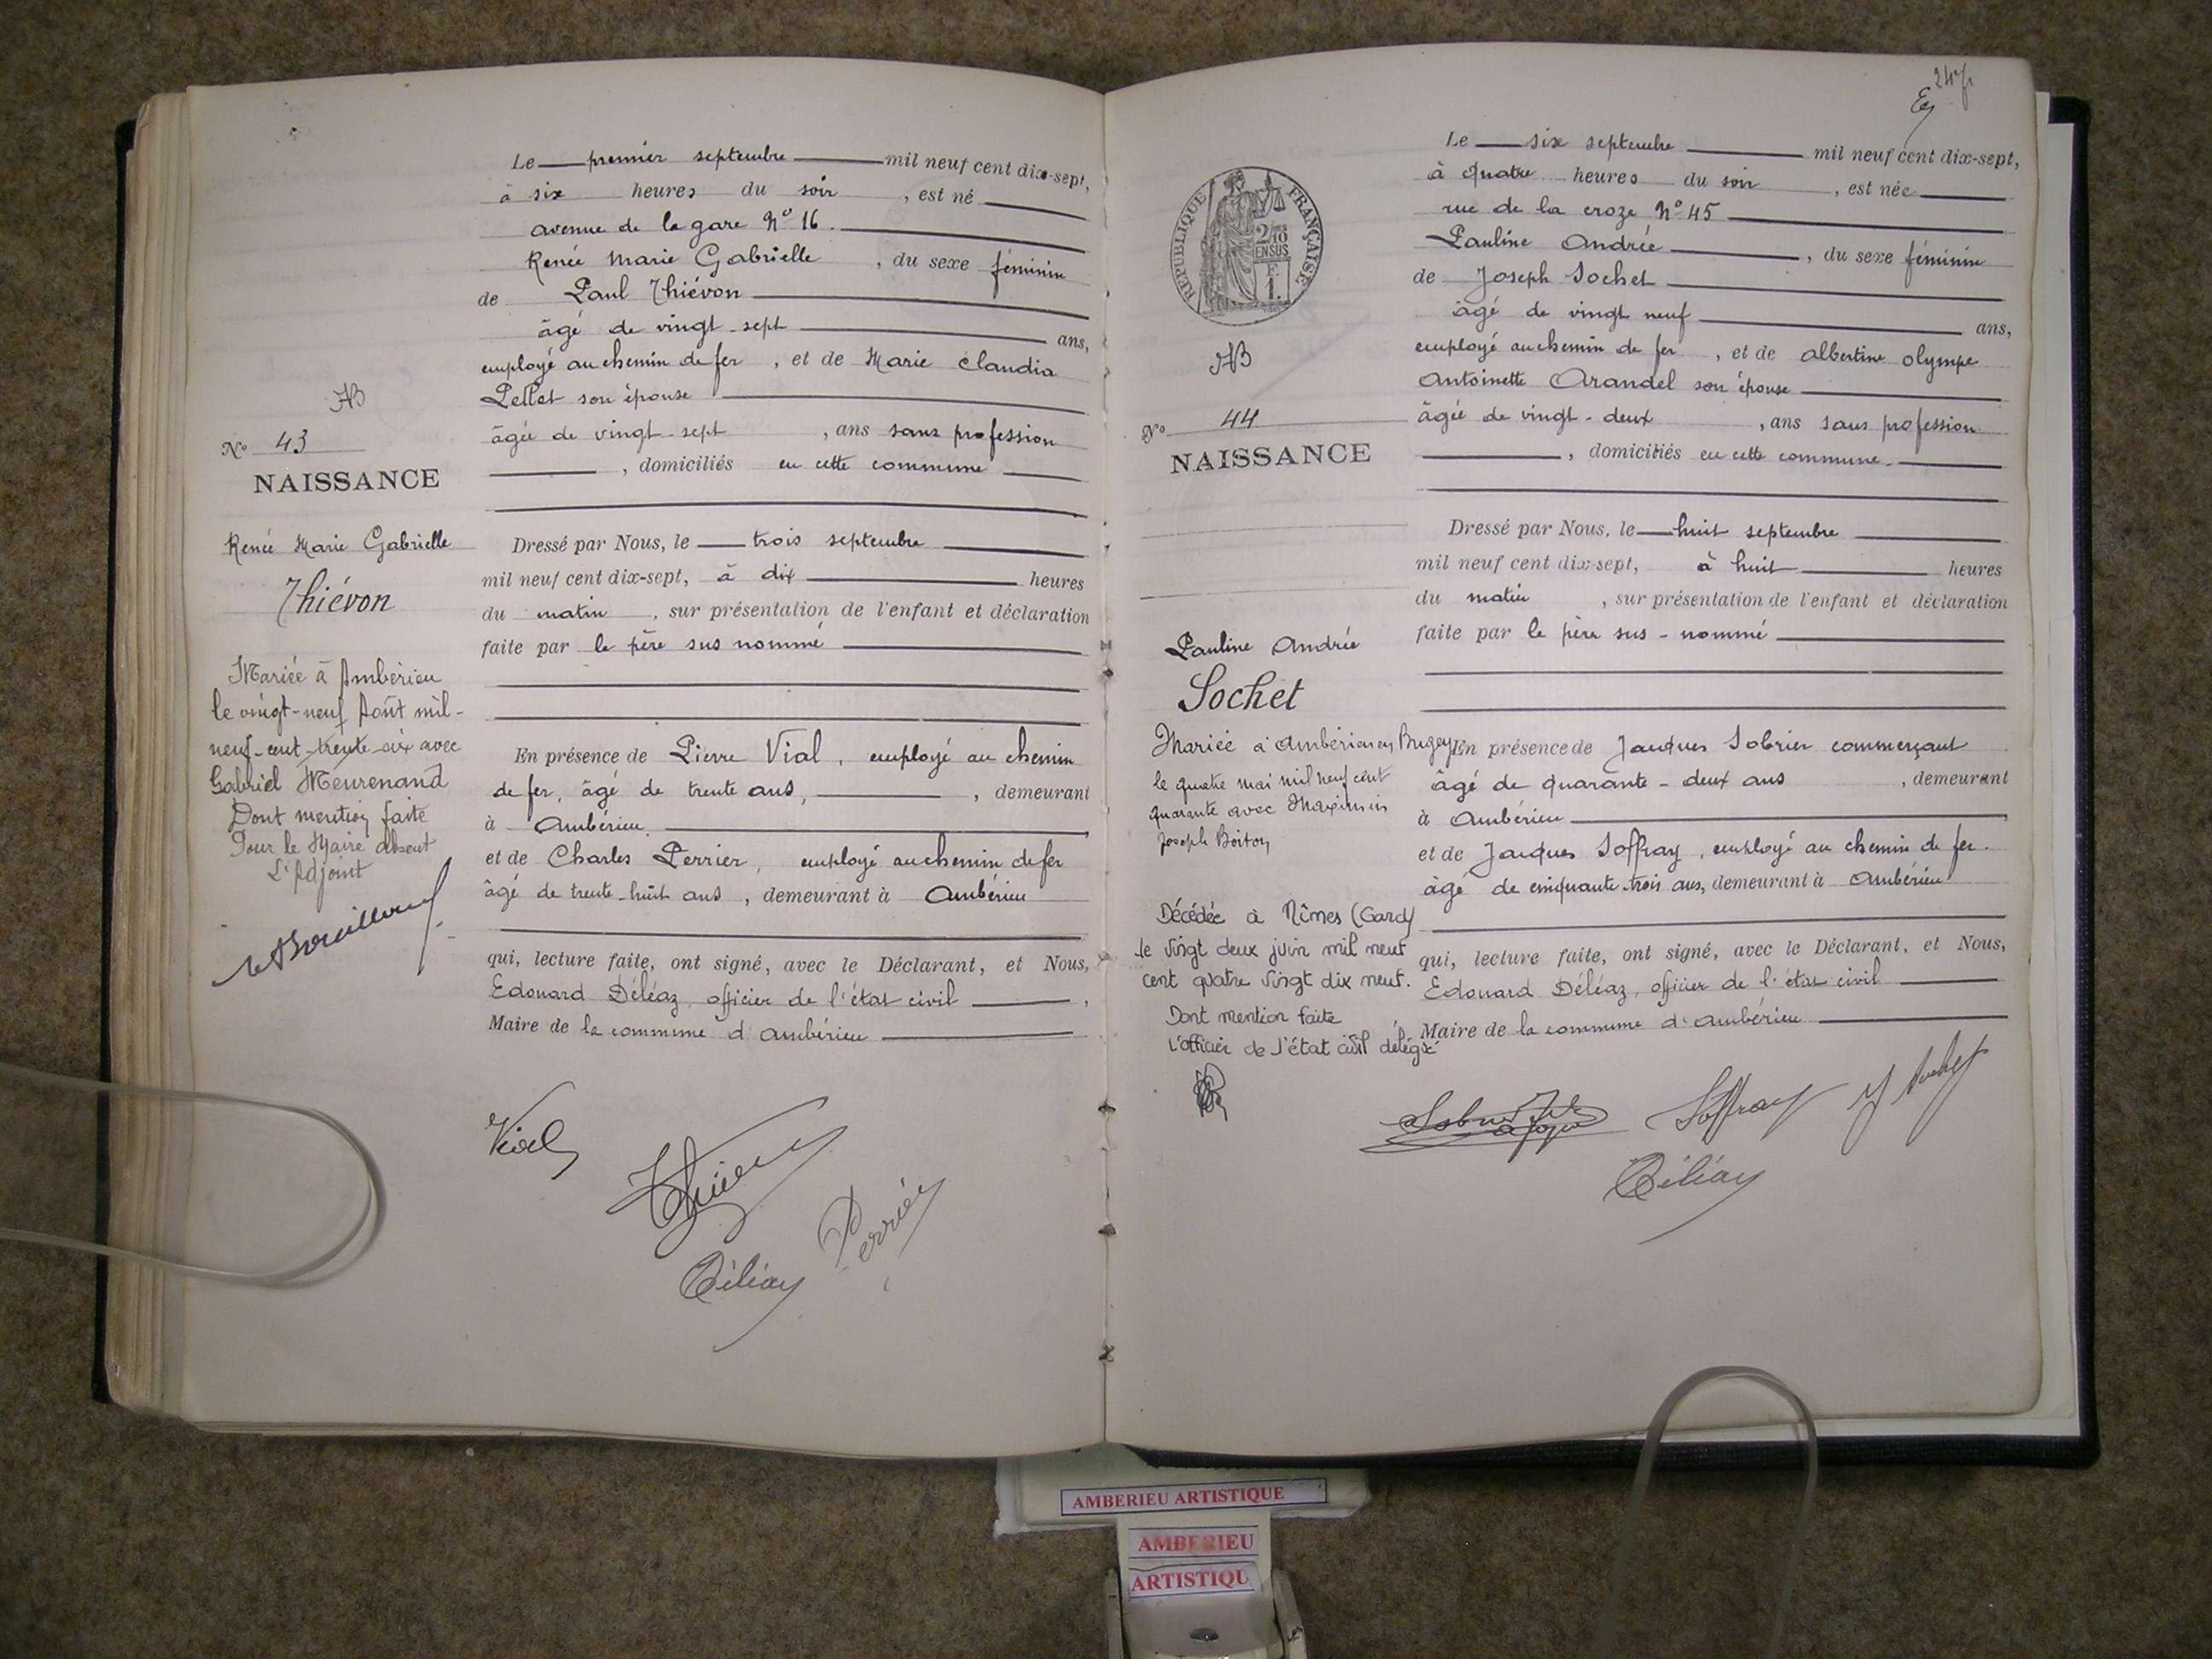 Le premier septembre mil neuf cent dix-sept,
à six heures du soir, est né
avenue de la gare N° 16.
Renée Marie Gabrielle, du sexe féminin
de Paul Thiévon
âgé de vingt-sept ans,
employé au chemin de fer, et de Marie Claudia
Pellet son épouse
âgée de vingt-sept, ans sans profession
, domiciliés en cette commune
AB
N° 43
NAISSANCE
Renée Marie Gabrielle
Thiévon
Mariée à Ambérieu
le vingt-neuf Août mil-
neuf-cent-trente-six avec
Gabriel Meurenand
Dont mention faite
Pour le Maire absent
L'Adjoint
Dressé par Nous, le trois septembre
mil neuf cent dix-sept, à dix heures
du matin, sur présentation de l'enfant et déclaration
faite par le père sus nommé
En présence de Pierre Vial, employé au chemin
de fer, âgé de trente ans, , demeurant
à Ambérieu.
et de Charles Perrier, employé au chemin de fer
âgé de trente-huit ans, demeurant à Ambérieu
qui, lecture faite, ont signé, avec le Déclarant, et Nous,
Edouard Déléaz, officier de l'état civil,
Maire de la commune d'Ambérieu
Vial
Perrier
Déléaz
24
Le six septembre mil neuf cent dix-sept,
à quatre heures du soir, est née
rue de la croze N° 45
Pauline Andrée, du sexe féminin
de Joseph Sochet
âgé de vingt neuf ans,
employé au chemin de fer, et de albertine olympe
Antoinette Arandel son épouse
âgée de vingt-deux, ans sans profession
, domiciliés en cette commune.
RÉPUBLIQUE FRANÇAISE
2/10
EN SUS
F.
1.
AB
N° 44
NAISSANCE
Pauline Andrée
Sochet
Mariée à Ambérieu en Bugey
le quatre mai mil neuf cent
quarante avec Maximin
Joseph Boiton
Décédée à Nîmes (Gard)
le vingt deux juin mil neuf
cent quatre vingt dix neuf.
Dont mention faite
L'officier de l'état civil délégué
Dressé par Nous, le huit septembre
mil neuf cent dix-sept, à huit heures
du matin, sur présentation de l'enfant et déclaration
faite par le père sus-nommé
En présence de Jacques Sobrier commerçant
âgé de quarante-deux ans, demeurant
à Ambérieu
et de Jacques Soffray, employé au chemin de fer.
âgé de cinquante-trois ans, demeurant à Ambérieu
qui, lecture faite, ont signé, avec le Déclarant, et Nous,
Edouard Déléaz, officier de l'état civil
Maire de la commune d'Ambérieu
Soffray
J Sochet
Déléaz
AMBERIEU ARTISTIQUE
AMBERIEU
ARTISTIQU